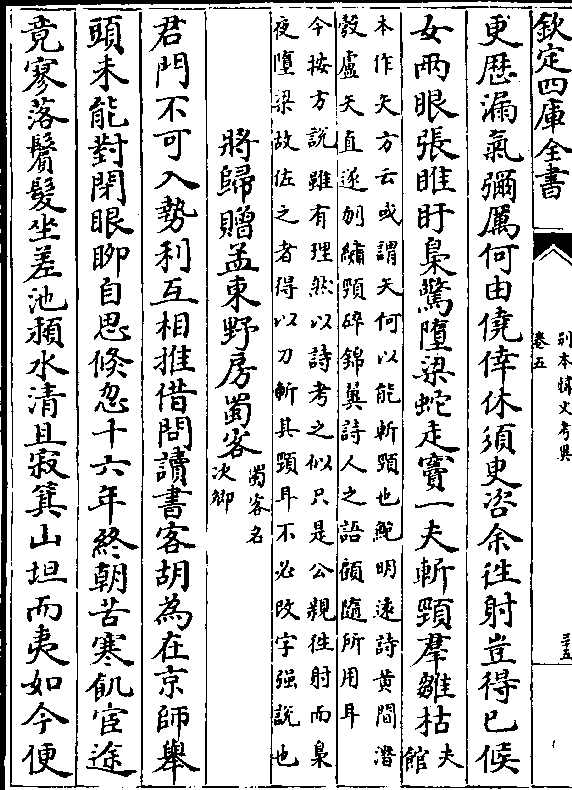 欽定四庫全書
別本韓文考異
卷五
三五
更歴漏氣彌厲何由僥倖休須臾咨余往射豈得已候
女兩眼張睢盱梟驚墮梁蛇走竇一夫斬頸羣雛枯夫
館
本作矢方云或謂天何以能斬頸也鮑明遠詩黄間潛
彀盧矢直逐刎繡頸碎錦翼詩人之語顧隨所用耳
今按方説雖有理然以詩考之似只是公親往射而梟
夜墮梁故佐之者得以刀斬其頸耳不必改字強説也
將歸贈孟東野房蜀客蜀客名
次卿
君門不可入勢利互相推借問讀書客胡為在京師舉
頭未能對閉眼聊自思倐忽十六年終朝苦寒飢宦途
竟寥落鬢髮坐差池潁水清且寂箕山坦而夷如今便